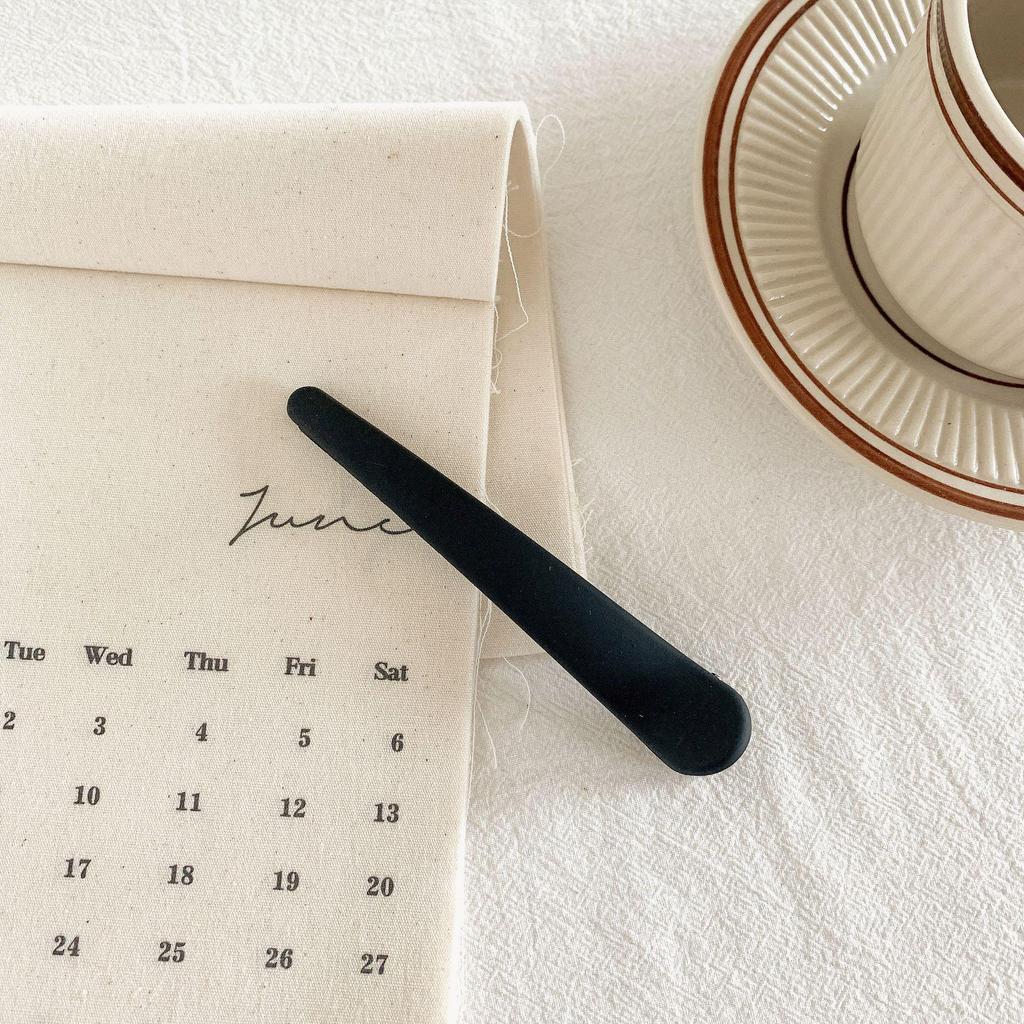 June
Tue Wed Thu Fri Sat
2 3 4 5 6
10 11 12 13
17 18 19 20
24 25 26 27